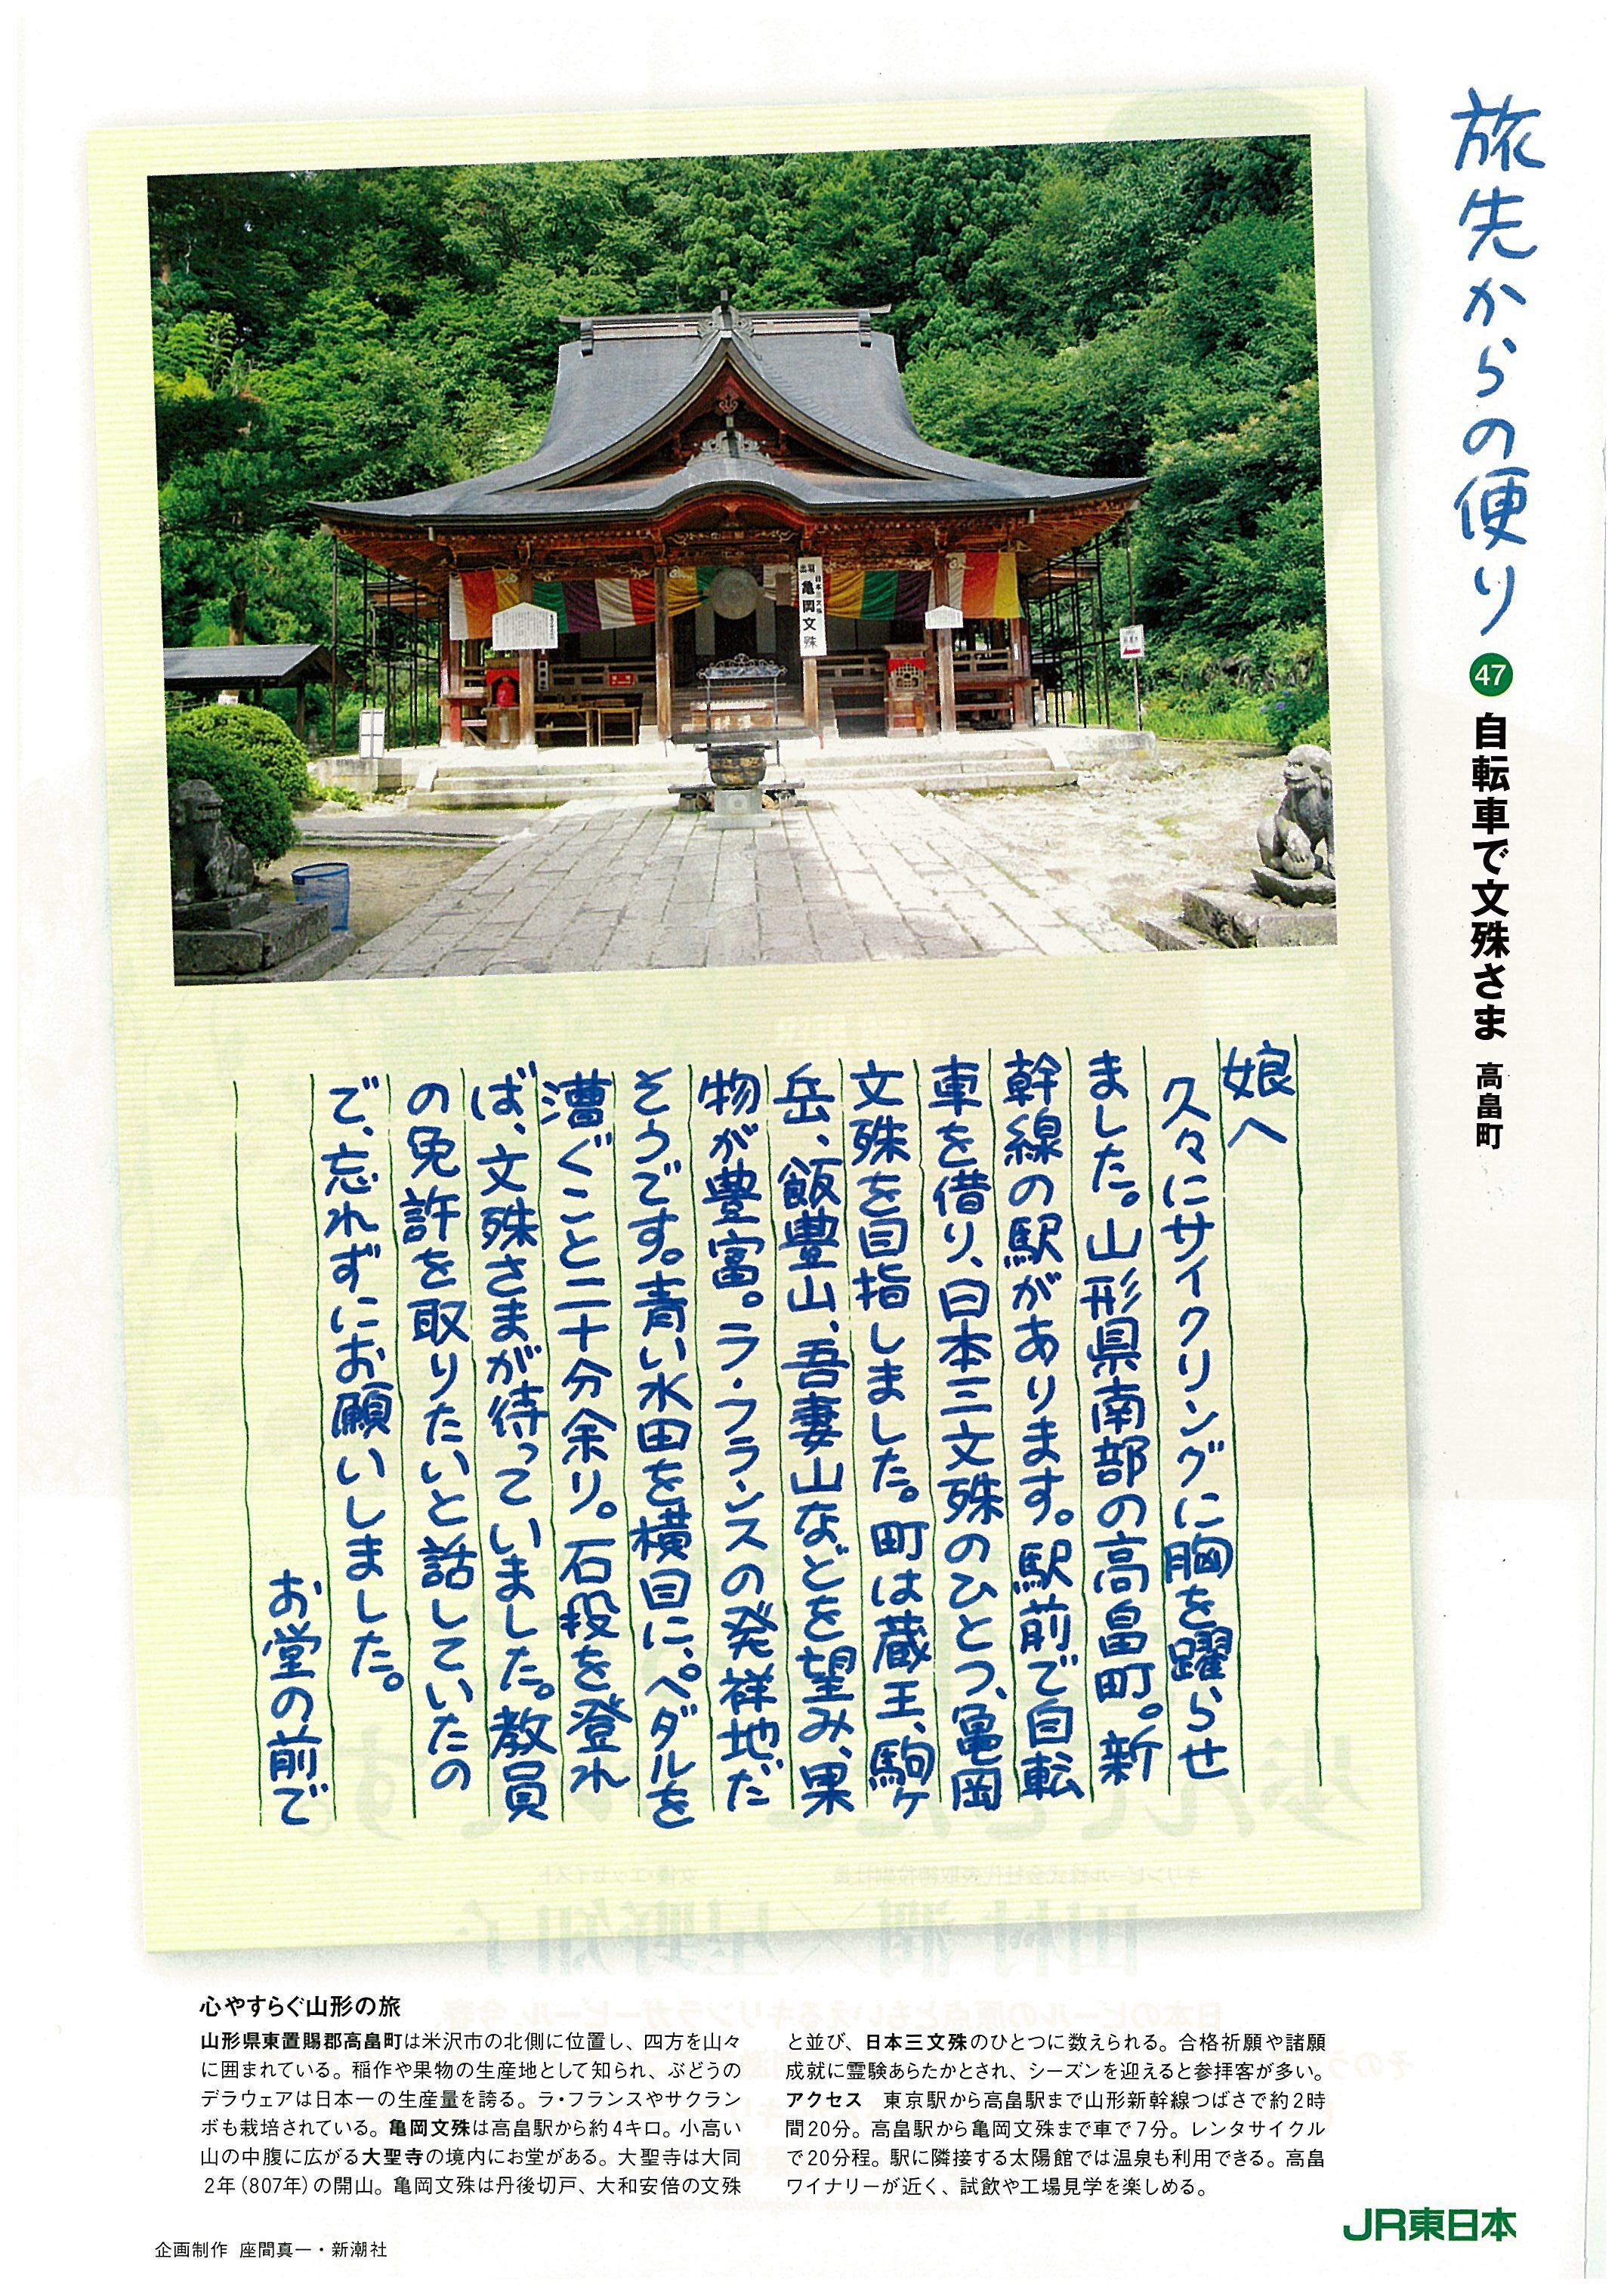 旅先からの便り
47
自転車で文殊さま 高畠町
出羽 日本三文殊
亀岡文殊
娘へ
久々にサイクリングに胸を躍らせ
ました。山形県南部の高畠町。新
幹線の駅があります。駅前で自転
車を借り、日本三文殊のひとつ、亀岡
文殊を目指しました。町は蔵王、駒ヶ
岳、飯豊山、吾妻山などを望み、果
物が豊富。ラ・フランスの発祥地だ
そうです。青い水田を横目に、ペダルを
漕ぐこと二十分余り。石段を登れ
ば、文殊さまが待っていました。教員
の免許を取りたいと話していたの
で、忘れずにお願いしました。
お堂の前で
心やすらぐ山形の旅
山形県東置賜郡高畠町は米沢市の北側に位置し、四方を山々
に囲まれている。稲作や果物の生産地として知られ、ぶどうの
デラウェアは日本一の生産量を誇る。ラ・フランスやサクラン
ボも栽培されている。亀岡文殊は高畠駅から約4キロ。小高い
山の中腹に広がる大聖寺の境内にお堂がある。大聖寺は大同
2年(807年)の開山。亀岡文殊は丹後切戸、大和安倍の文殊
と並び、日本三文殊のひとつに数えられる。合格祈願や諸願
成就に霊験あらたかとされ、シーズンを迎えると参拝客が多い。
アクセス 東京駅から高畠駅まで山形新幹線つばさで約2時
間20分。高畠駅から亀岡文殊まで車で7分。レンタサイクル
で20分程。駅に隣接する太陽館では温泉も利用できる。高畠
ワイナリーが近く、試飲や工場見学を楽しめる。
JR東日本
企画制作 座間真一・新潮社